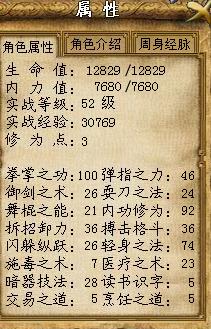 属性
角色属性 角色介绍 周身经脉
生命值: 12829/12829
内力值: 7680/7680
实战等级: 52级
实战经验: 30769
修为点: 3
拳掌之功: 100 弹指之力: 46
御剑之术: 26 耍刀之法: 24
舞棍之能: 21 内功修为: 92
拆招卸力: 36 搏击格斗: 36
闪躲纵跃: 26 轻身之法: 74
施毒之术: 7 医疗之术: 23
暗器技法: 28 读书识字: 5
交易之道: 5 烹饪之道: 5